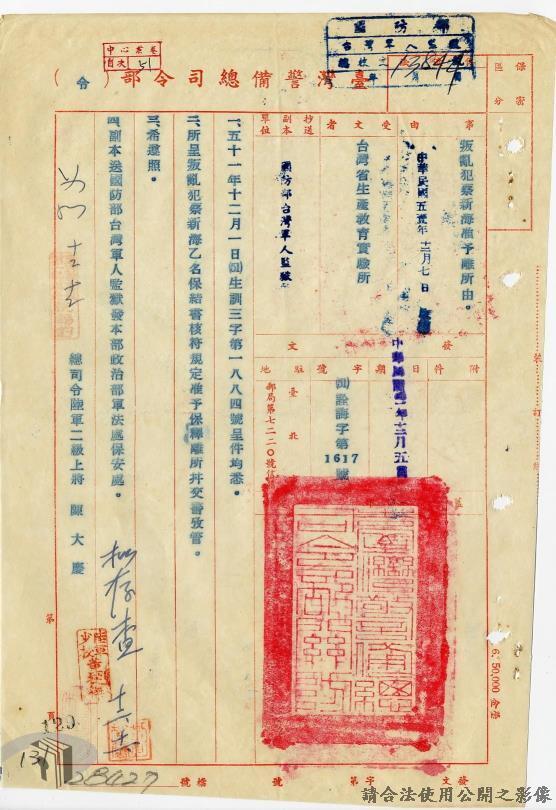 臺灣警備總司令部（令）
中心案卷
目次 51
國防部
台灣軍人監獄
保密
區分
事由
叛亂犯蔡新海准予離所由。
受文者
台灣省生產教育實驗所
中華民國五壹年十二月七日
抄送
副本
單位
國防部台灣軍人監獄
發文
附件
日期
中華民國五一年十二月五日
字號
詮誨字第1617號
駐地
臺北
郵局第七二二〇號信箱
一、五十一年十二月一日生訓三字第一八八四號呈件均悉。
二、所呈叛亂犯蔡新海乙名保結審核符規定准予保釋離所并交警攷管。
三、希遵照。
四、副本送國防部台灣軍人監獄發本部政治部軍法處保安處。
總司令陸軍二級上將 陳大慶
擬存查
第
頁
120
13
28427
6.50,000
裝
訂
發文 字第 號 檔號
請合法使用公開之影像